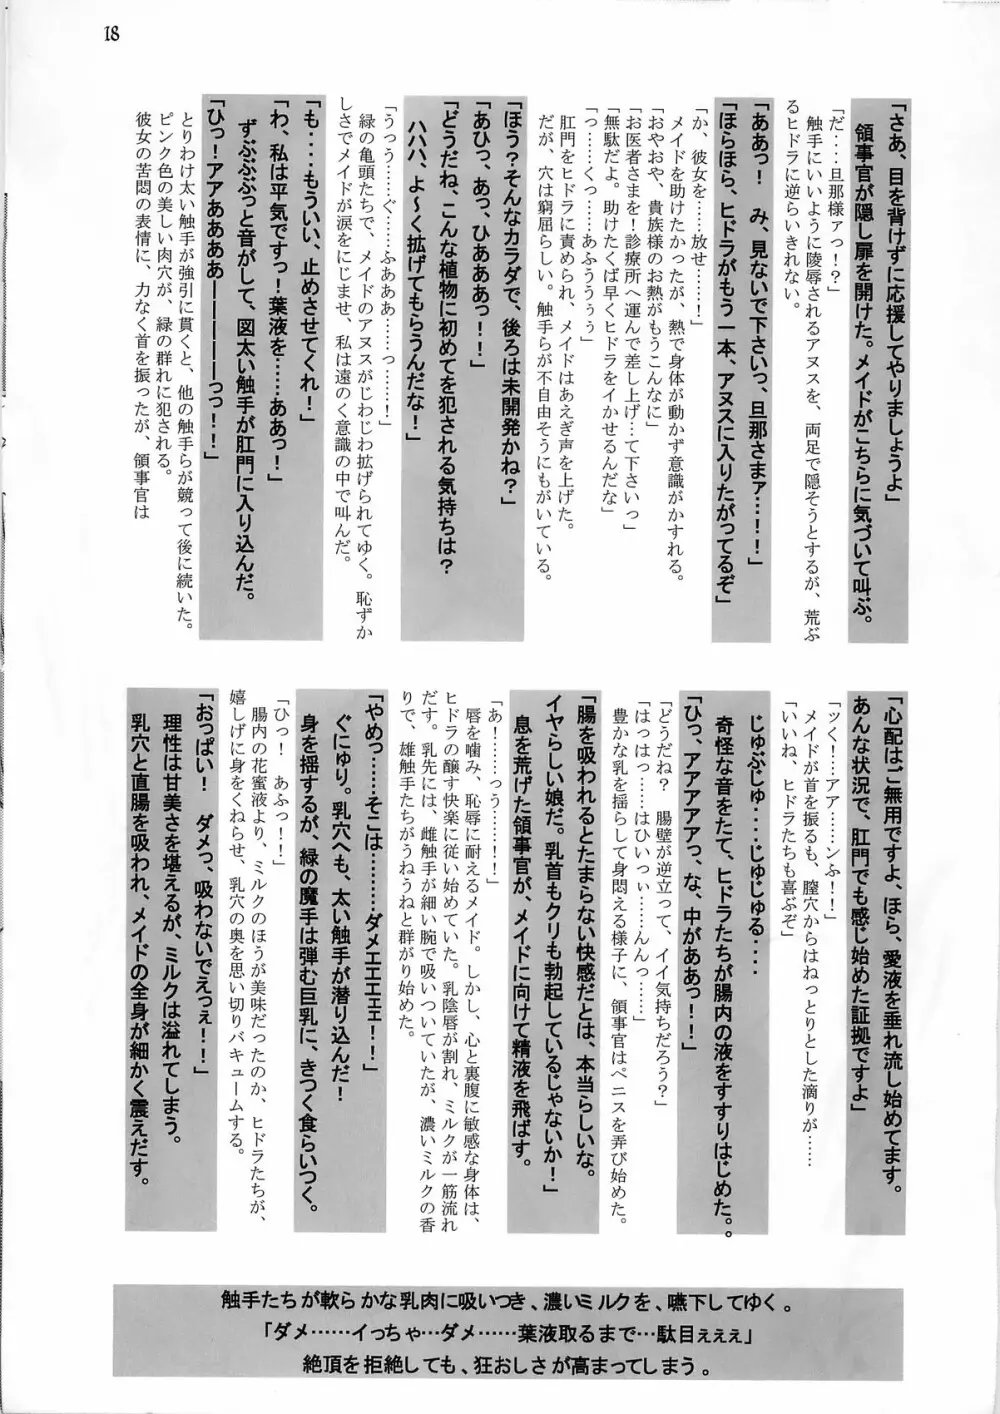 18
「さあ、目を背けずに応援してやりましょうよ」
領事官が隠し扉を開けた。メイドがこちらに気づいて叫ぶ。
「だ‥‥旦那様ァっ！？」
触手にいいように陵辱されるアヌスを、両足で隠そうとするが、荒ぶ
るヒドラに逆らいきれない。
「ああっ！　み、見ないで下さいっ、旦那さまァ‥‥！！」
「ほらほら、ヒドラがもう一本、アヌスに入りたがってるぞ」
「か、彼女を……放せ……！」
メイドを助けたかったが、熱で身体が動かず意識がかすれる。
「おやおや、貴族様のお熱がもうこんなに」
「お医者さまを！診療所へ運んで差し上げ…て下さいっ」
「無駄だよ。助けたくば早くヒドラをイかせるんだな」
「っ……くっ……あふううぅぅ」
肛門をヒドラに責められ、メイドはあえぎ声を上げた。
だが、穴は窮屈らしい。触手らが不自由そうにもがいている。
「ほう？そんなカラダで、後ろは未開発かね？」
「あひっ、あっ、ひあああっ！！」
「どうだね、こんな植物に初めてを犯される気持ちは？
ハハハ、よ～く拡げてもらうんだな！」
「うっっう……ぐ……ふあああ……っ……！」
緑の亀頭たちで、メイドのアヌスがじわじわ拡げられてゆく。恥ずか
しさでメイドが涙をにじませ、私は遠のく意識の中で叫んだ。
「も‥‥もういい、止めさせてくれ！」
「わ、私は平気ですっ！葉液を……ああっ！」
ずぶぶぶっと音がして、図太い触手が肛門に入り込んだ。
「ひっ！アアああああ――――――っっ！！」
とりわけ太い触手が強引に貫くと、他の触手らが競って後に続いた。
ピンク色の美しい肉穴が、緑の群れに犯される。
彼女の苦悶の表情に、力なく首を振ったが、領事官は
「心配はご無用ですよ、ほら、愛液を垂れ流し始めてます。
あんな状況で、肛門でも感じ始めた証拠ですよ」
「ッく！…アア……ンふ！！」
メイドが首を振るも、膣穴からはねっとりとした滴りが……
「いいね、ヒドラたちも喜ぶぞ」
じゅぷじゅ‥‥じゅじゅる‥‥
奇怪な音をたて、ヒドラたちが腸内の液をすすりはじめた。。
「ひっ、アアアアアっ、な、中がああっ！！」
「どうだね？　腸壁が逆立って、イイ気持ちだろう？」
「はっはっ……はひいっぃ……んんっ……」
豊かな乳を揺らして身悶える様子に、領事官はペニスを弄び始めた。
「腸を吸われるとたまらない快感だとは、本当らしいな。
イヤらしい娘だ。乳首もクリも勃起しているじゃないか！」
息を荒げた領事官が、メイドに向けて精液を飛ばす。
「あ！……っう……！！！」
唇を噛み、恥辱に耐えるメイド。しかし、心と裏腹に敏感な身体は、
ヒドラの醸す快楽に従い始めていた。乳陰唇が割れ、ミルクが一筋流れ
だす。乳先には、雌触手が細い腕で吸いついていたが、濃いミルクの香
りで、雄触手たちがうねうねと群がり始めた。
「やめっ……そこは………ダメエエエェェ！！」
ぐにゅり。乳穴へも、太い触手が潜り込んだ！
身を揺するが、緑の魔手は弾む巨乳に、きつく食らいつく。
「ひっ！　あふっ！！」
腸内の花蜜液より、ミルクのほうが美味だったのか、ヒドラたちが、
嬉しげに身をくねらせ、乳穴の奥を思い切りバキュームする。
「おっぱい！　ダメっ、吸わないでえっぇ！！」
理性は甘美さを堪えるが、ミルクは溢れてしまう。
乳穴と直腸を吸われ、メイドの全身が細かく震えだす。
触手たちが軟らかな乳肉に吸いつき、濃いミルクを、嚥下してゆく。
「ダメ……イっちゃ…ダメ……葉液取るまで…駄目ぇぇぇ」
絶頂を拒絶しても、狂おしさが高まってしまう。